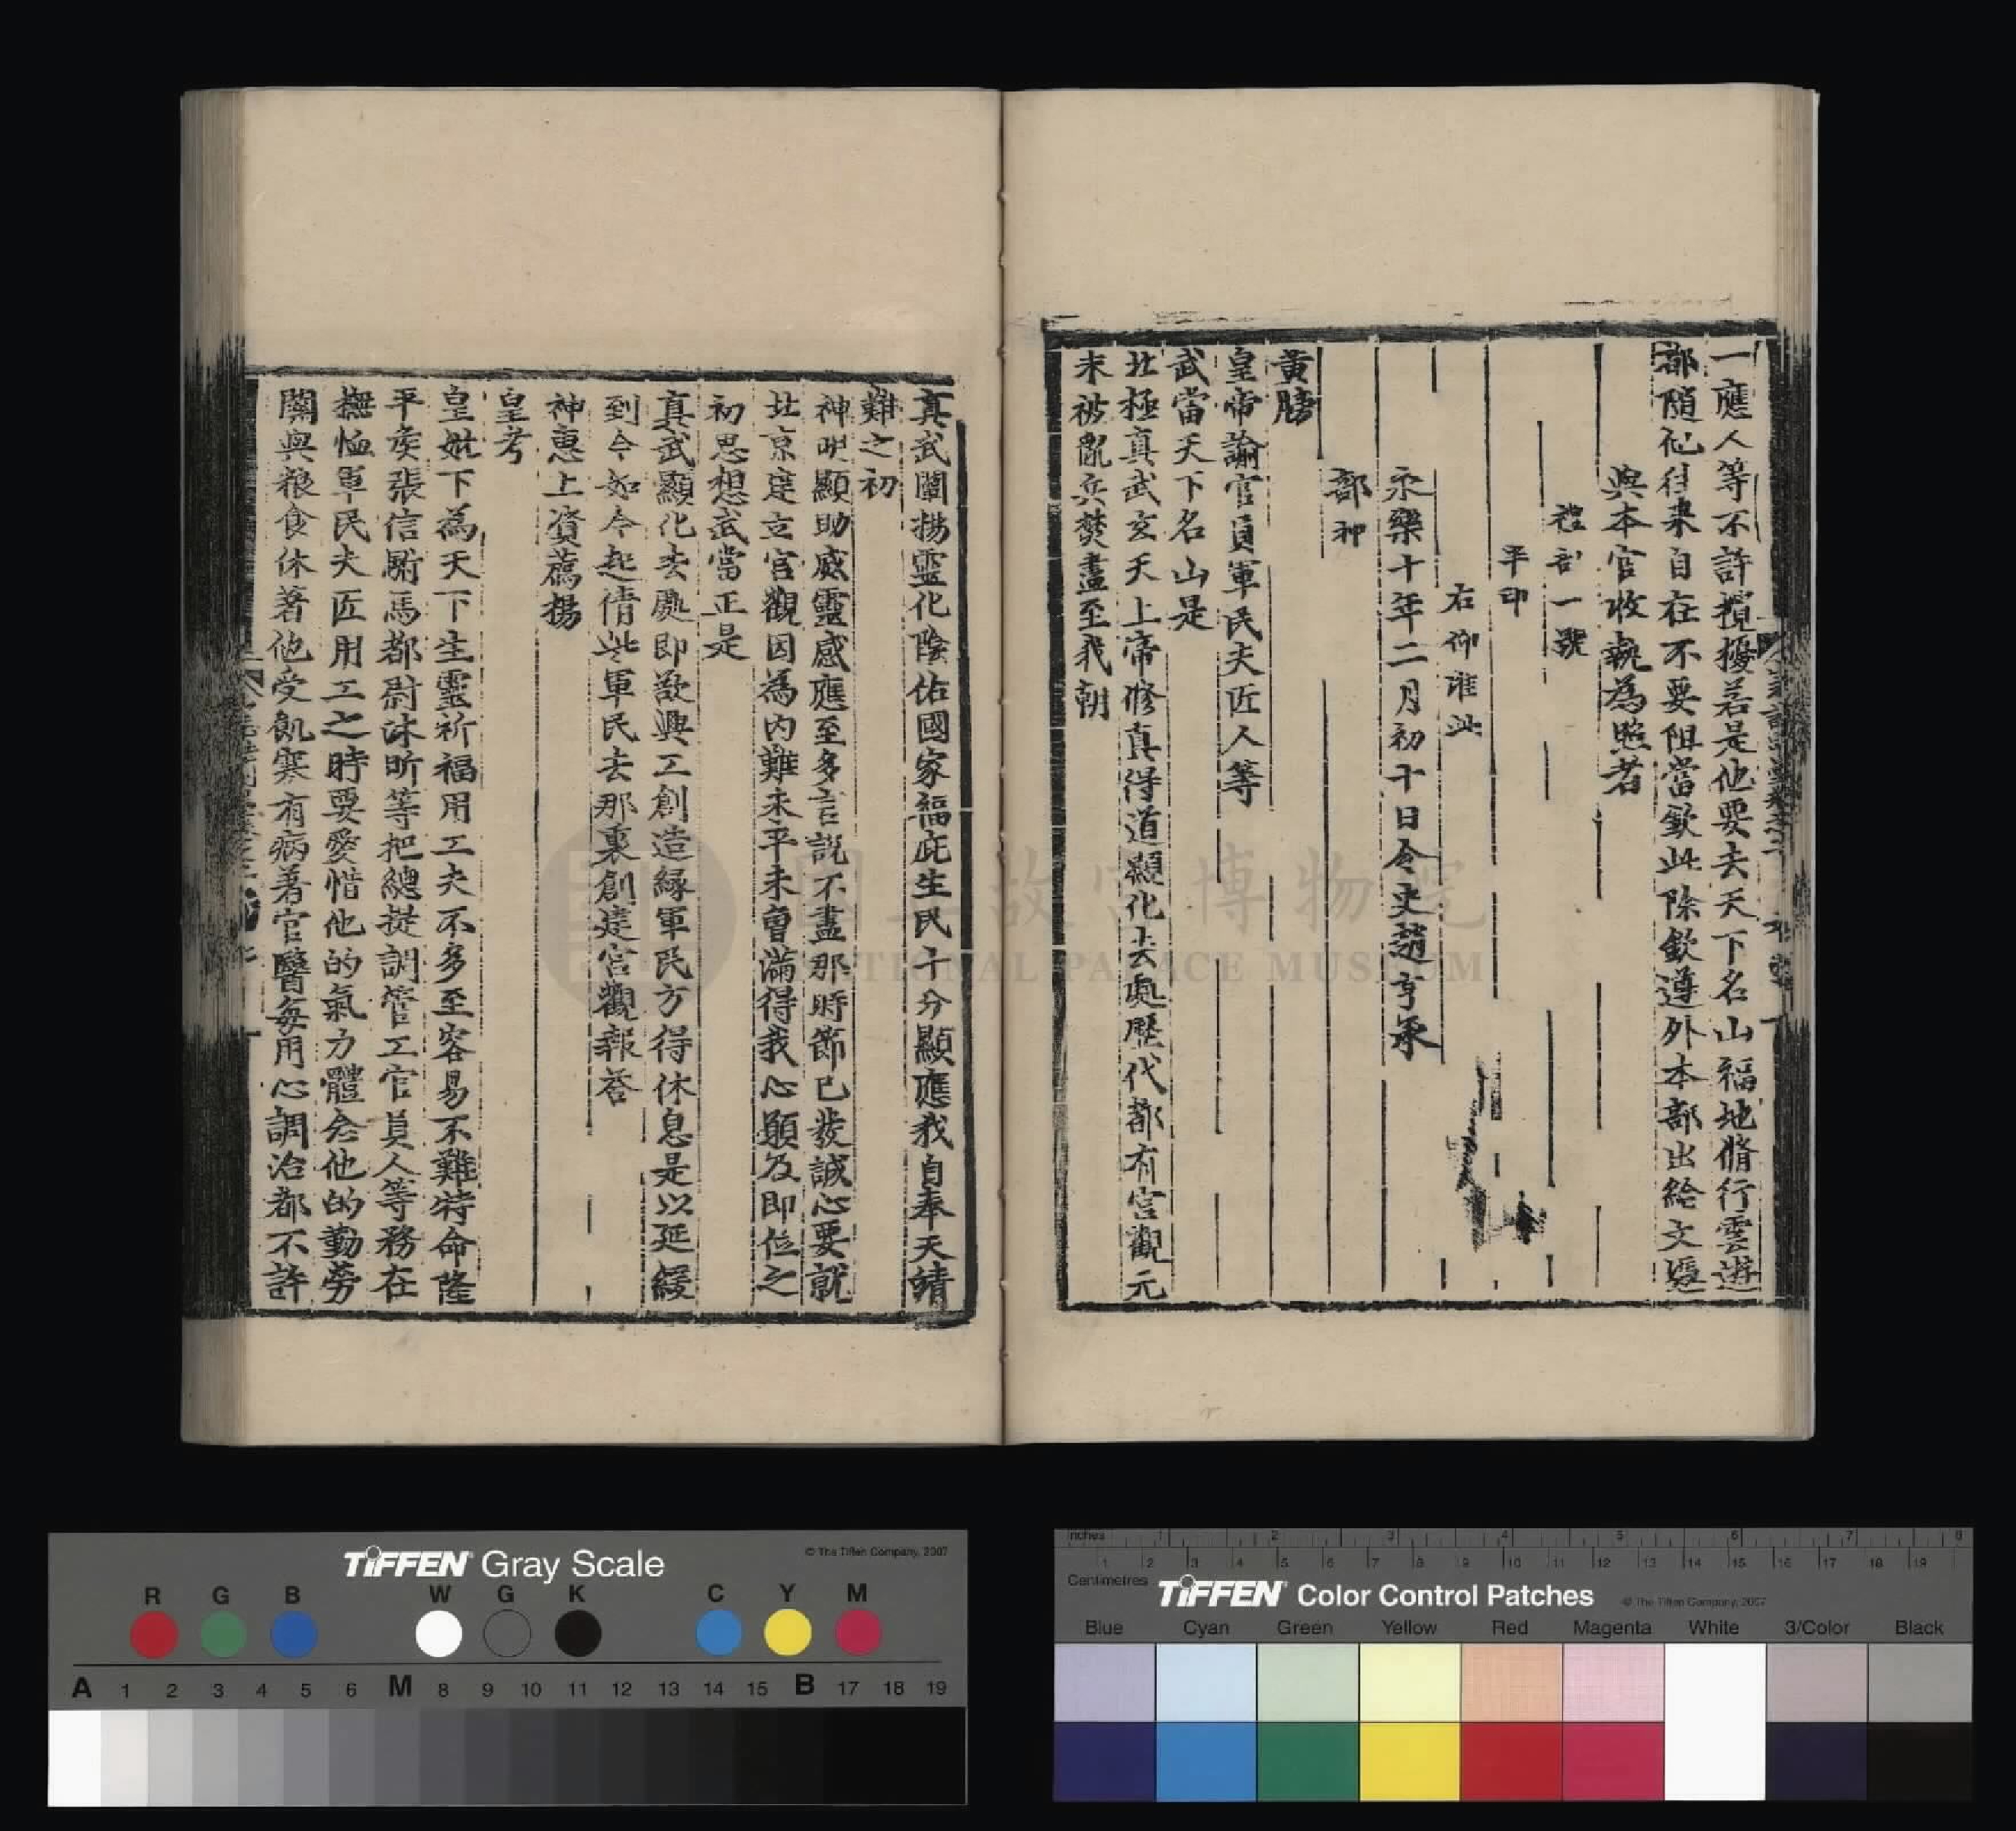 一應人等不許攪擾若是他要去天下名山福地脩行雲遊
都隨他往來自在不要阻當欽此除欽遵外本部出給文憑
與本官收執為照者
禮部一號
平印
右仰准此
永樂十年二月初十日令史趙亨承
部押
黃牓
皇帝諭官員軍民夫匠人等
武當天下名山是
北極真武玄天上帝修真得道顯化去處歷代都有宮觀元
末被亂兵焚盡至我朝
真武闡揚靈化陰佑國家福庇生民十分顯應我自奉天靖
難之初
神明顯助威靈感應至多言說不盡那時節已發誠心要就
北京建立宮觀因為內難未平未曾滿得我心願及即位之
初思想武當正是
真武顯化去處即欲興工創造緣軍民方得休息是以延緩
到今如今起倩些軍民去那裏創建宮觀報荅
神惠上資薦揚
皇考
皇妣下為天下生靈祈福用工夫不多至容易不難特命隆
平矦張信駙馬都尉沐昕等把總提調管工官員人等務在
撫恤軍民夫匠用工之時要愛惜他的氣力體念他的勤勞
關與粮食休著他受飢寒有病著官醫每用心調治都不許
國立故宮博物院
NATIONAL PALACE MUSEUM
TIFFEN Gray Scale
© The Tiffen Company, 2007
R G B W G K C Y M
A 1 2 3 4 5 6 M 8 9 10 11 12 13 14 15 B 17 18 19
Inches 1 2 3 4 5 6 7 8
1 2 3 4 5 6 7 8 9 10 11 12 13 14 15 16 17 18 19
Centimetres
TIFFEN Color Control Patches
© The Tiffen Company, 2007
Blue Cyan Green Yellow Red Magenta White 3/Color Black